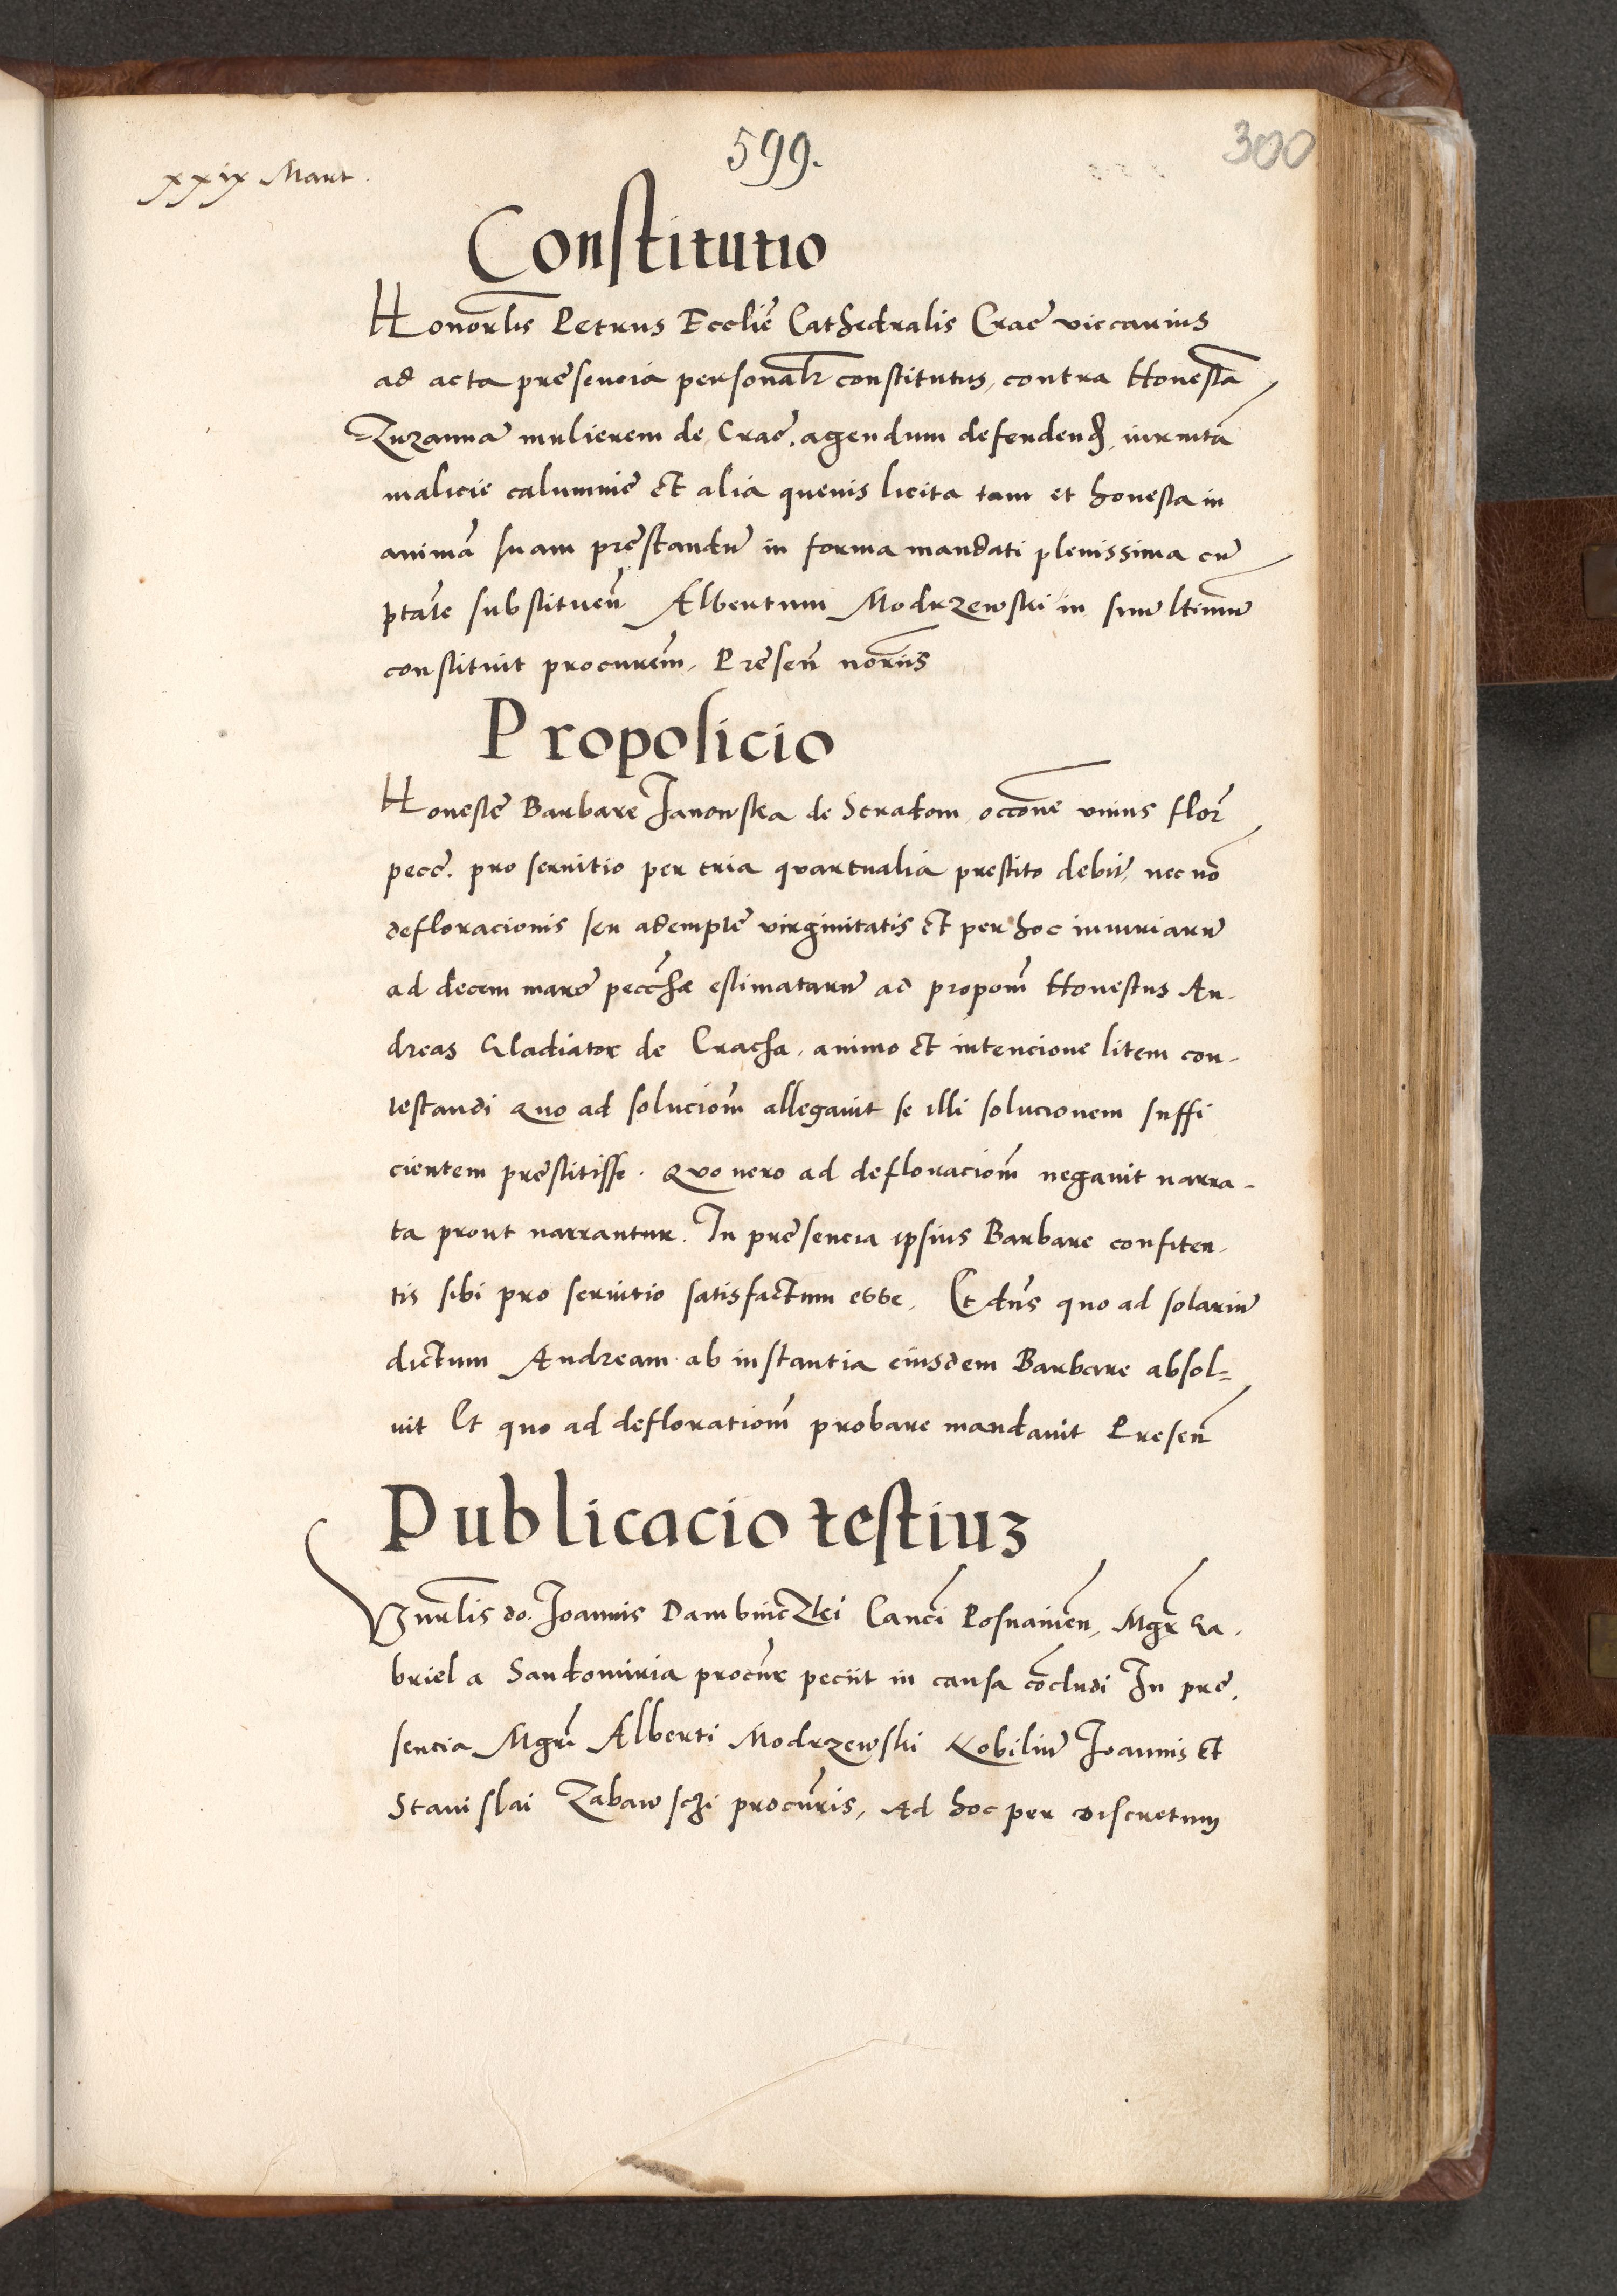 599.
300
xxix Mart.
Constitutio
Honorlis Petrus Ecclie Cathedralis Crac viccarius
ad acta presencia personalr constitutus, contra Honesta
Zuzanna mulierem de Crac. agendum defendend, iurmta
malicie calumnie et alia quevis licita tam et honesta in
anima suam prestandu in forma mandati plenissima cu
ptate substituen Albertum Modrzewski in suu ltimu
constituit procurem, Presen noriis
Proposicio
Honeste Barbare Janowska de Stradom, occone unius flor
pecc. pro servitio per tria quartualia prestito debit, nec no
defloracionis seu adempte virginitatis et per hoc iniuriaru
ad decem marc peccha estimataru ac propom Honestus An-
dreas Gladiator de Cracha, animo et intencione litem con-
testandi quo ad soluciom allegavit se illi solucionem suffi
cientem prestitisse. Quo vero ad defloraciom negavit narra-
ta prout narrantur. In presencia ipsius Barbare confiten-
tis sibi pro servitio satisfactum esse, Et dns quo ad solariu
dictum Andream ab instantia eiusdem Barbare absol=
vit Et quo ad defloratiom probare mandavit Presen
Publicacio testiuz
Vnrlis do. Joannis Dambinczki Canci Posnanien, Mgr Ga-
briel a Sandomiria procur peciit in causa cocludi In pre-
sencia Mgri Alberti Modrzewski Nobiliu Joannis et
Stanislai Zabawski procuris, Ad hoc per discretum